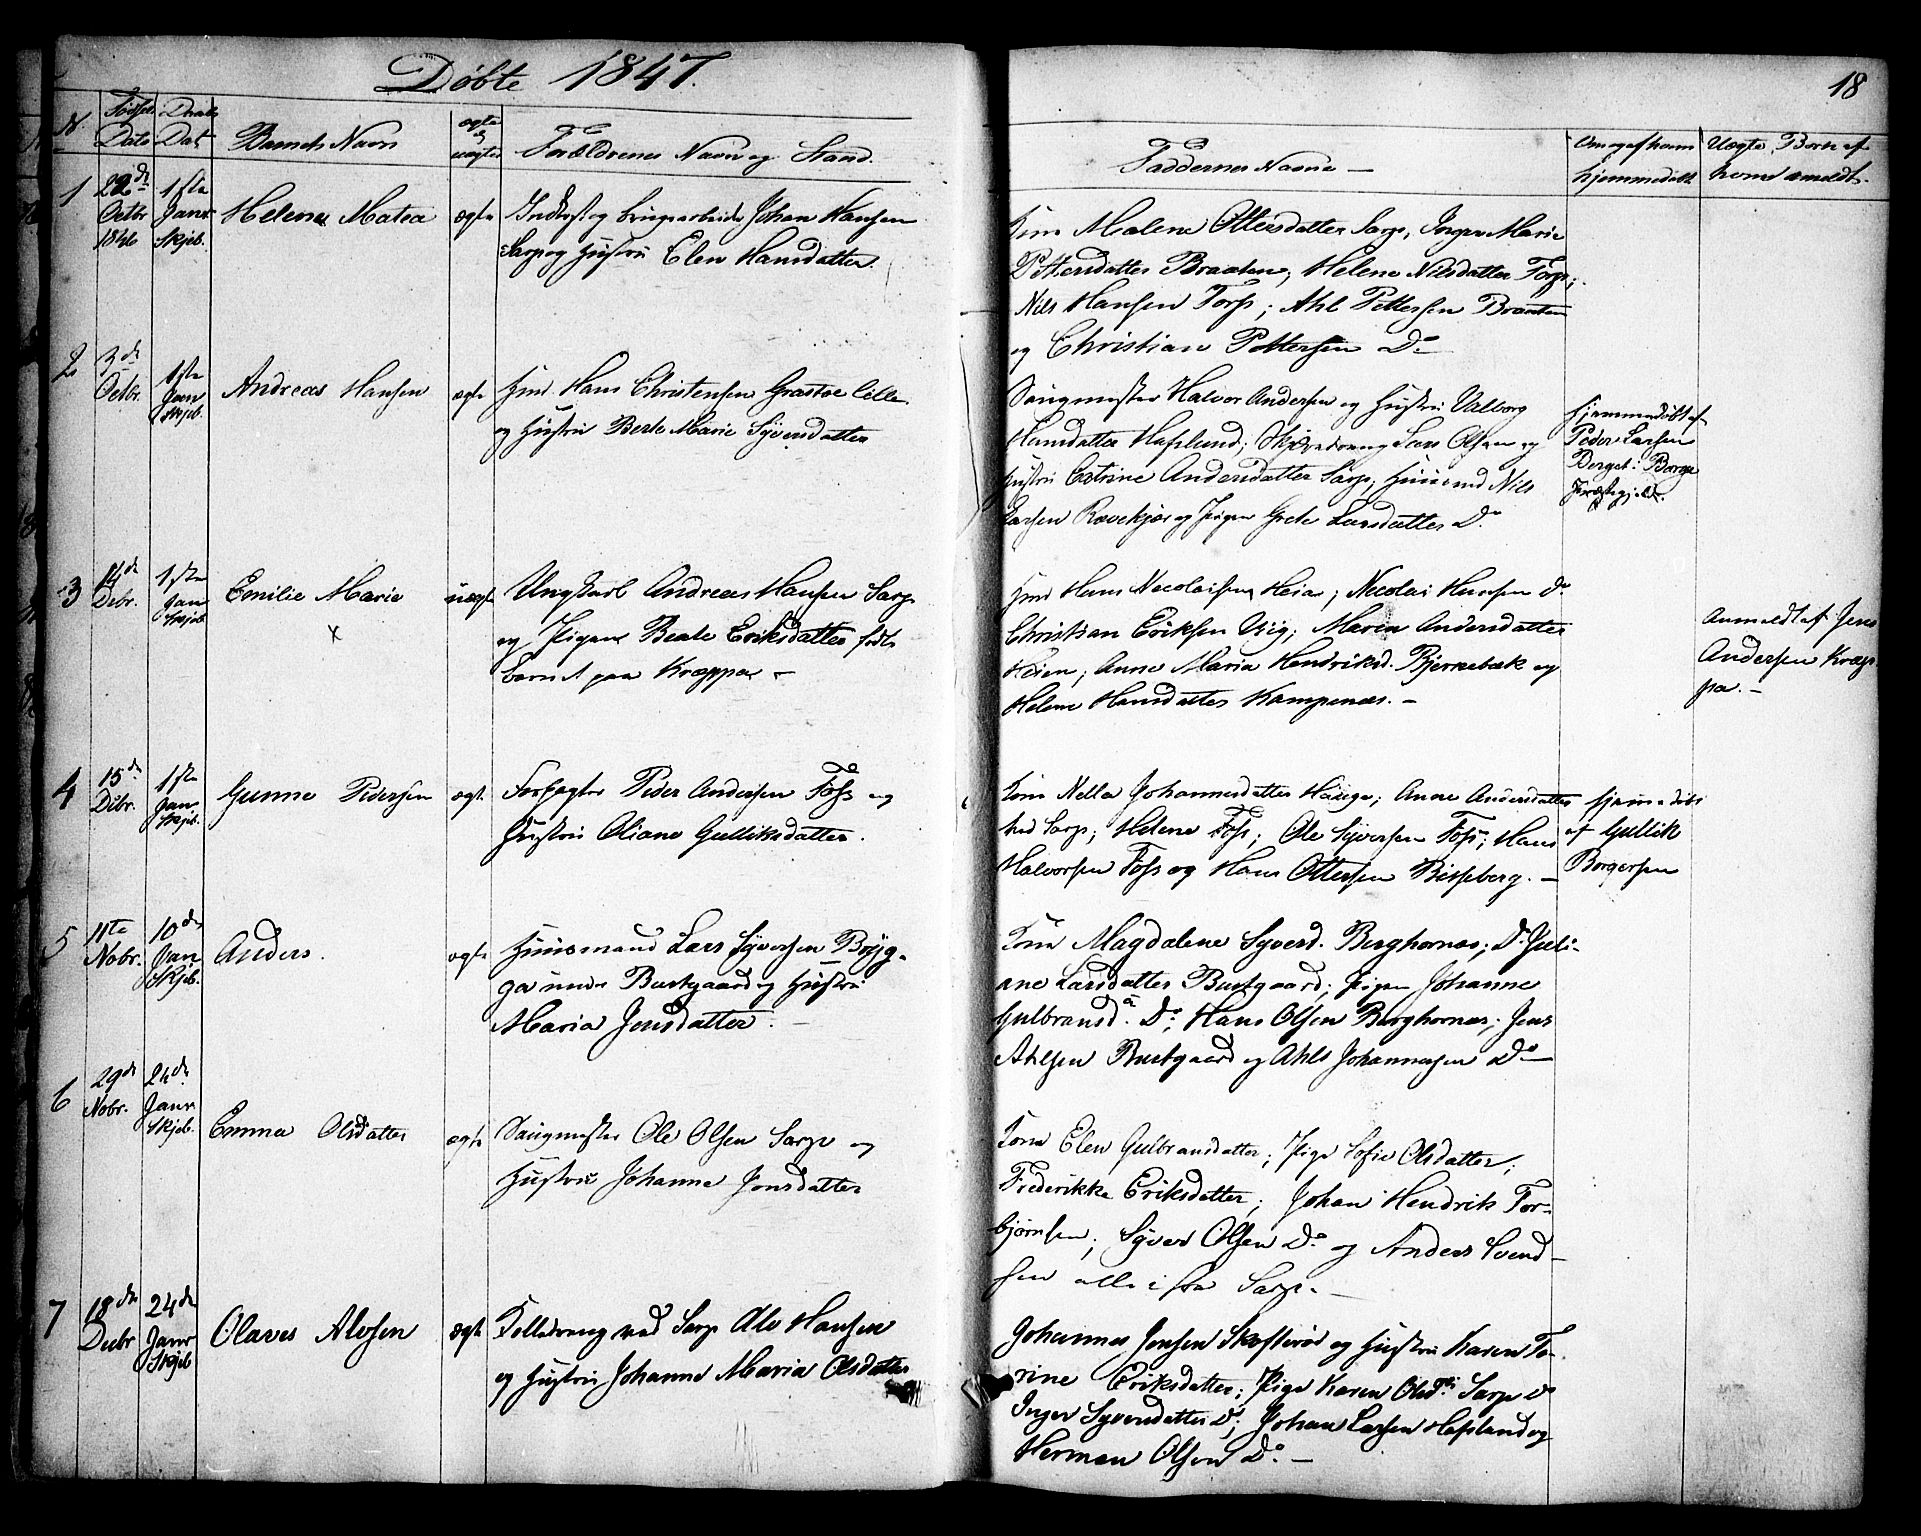 Døbte 1847.
18
N Fødsels Dato Daabs Dat Barnets Navn ægte el. uægte Forældrenes Navn og Stand.
Faddernes Navne —
Om og af hvem hjemmedøbt
Uægte Børn af hvem anmeldt.
1 22de Octbr 1846
1ste Janr Skjeb.
Helene Matea
ægte
Indherst og brugsarbeider Johan Hansen
Sarp og Hustru Elen Hansdatter.
Kone Malene Ottersdatter Sarp, Inger Marie
Pettersdatter Braaten, Helene Nilsdatter Torp;
Nils Hansen Torp; Ahl Pettersen Braaten
og Christian Pettersen Do
2 3de Octbr.
1ste Jan Skjeb.
Andreas Hansen
ægte
Hmd. Hans Christensen Lille
og Hustru Berte Marie Syversdatter
Saugmester Halvor Andersen og Hustru Valborg
Hansdatter Hafslund; Lars Olsen og
Hustru Catrine Andersdatter Sarp; Huusmd Nils
Larsen Rævekjær og Pigen Grete Larsdatter Do
Hjemmedøbt af
Peder Larsen
Berget i Borge
Præstegjeld.
3 14de Debr.
1ste Jan Skjeb.
Emilie Marie
x
uægte
Ungkarl Andreas Hansen Sarp
og Pigen Beate Eriksdatter født
barnet paa Kræppa —
Hmd Hans Necolaisen Heia; Necolai Hansen Do
Christian Eriksen Viig; Maren Andersdatter
Heien; Anne Maria Hendriksd. Bjernebæk og
Helene Hansdatter Kampenæs. —
Anmeldt af Jens
Andersen Kræp-
pa. —
4 15de Dibr.
1ste Jan Skjeb.
Gunne Pedersen
ægt.
Forpagter Peder Andersen Foss og
Hustru Oliane Gulliksdatter.
Kone Nella Johannesdatter Hauge; Anne Andersdatter
ved Sarp; Helene Foss; Ole Syversen Foss; Hans
Halvorsen Foss og Hans Ottersen Bisseberg. —
hjemmedøbt
af Gullik
Borgersen
5 11te Nobr.
10de Jan Skjeb.
Anders.
ægte
Huusmand Lars Syversen Bryg-
ga under Burtgaard og Hustru
Maria Jensdatter. —
Kone Magdalene Syversd. Berghornæs; Do Juli-
ane Larsdatter Burtgaard; Pigen Johanne
Gulbransd. Do; Hans Olsen Berghornæs; Jens
Ahlsen Burtgaard og Ahls Johannesen Do
6 29de Nobr.
24de Janr. Skjeb.
Emma Olsdatter
ægte
Saugmester Ole Olsen Sarp og
Hustru Johanne Jonsdatter
Kone Elen Gulbransdatter; Pige Sofie Olsdatter;
Frederikke Eriksdatter; Johan Hendrik Tor-
bjørnsen; Syver Olsen Do og Anders Svend-
sen alle i fra Sarp. —
7 18de Decbr
24de Janr Skjeb
Olaves Alvsen
ægt.
ved Sarp Alv Hansen
og Hustru Johanne Maria Olsdatter
Johannes Jensen Skofterød og Hustru Karen To-
rine Eriksdatter; Pige Karen Olsdtr. Sarp Do
Inger Syversdatter Do; Johan Larsen Hafslund og
Herman Olsen Do —